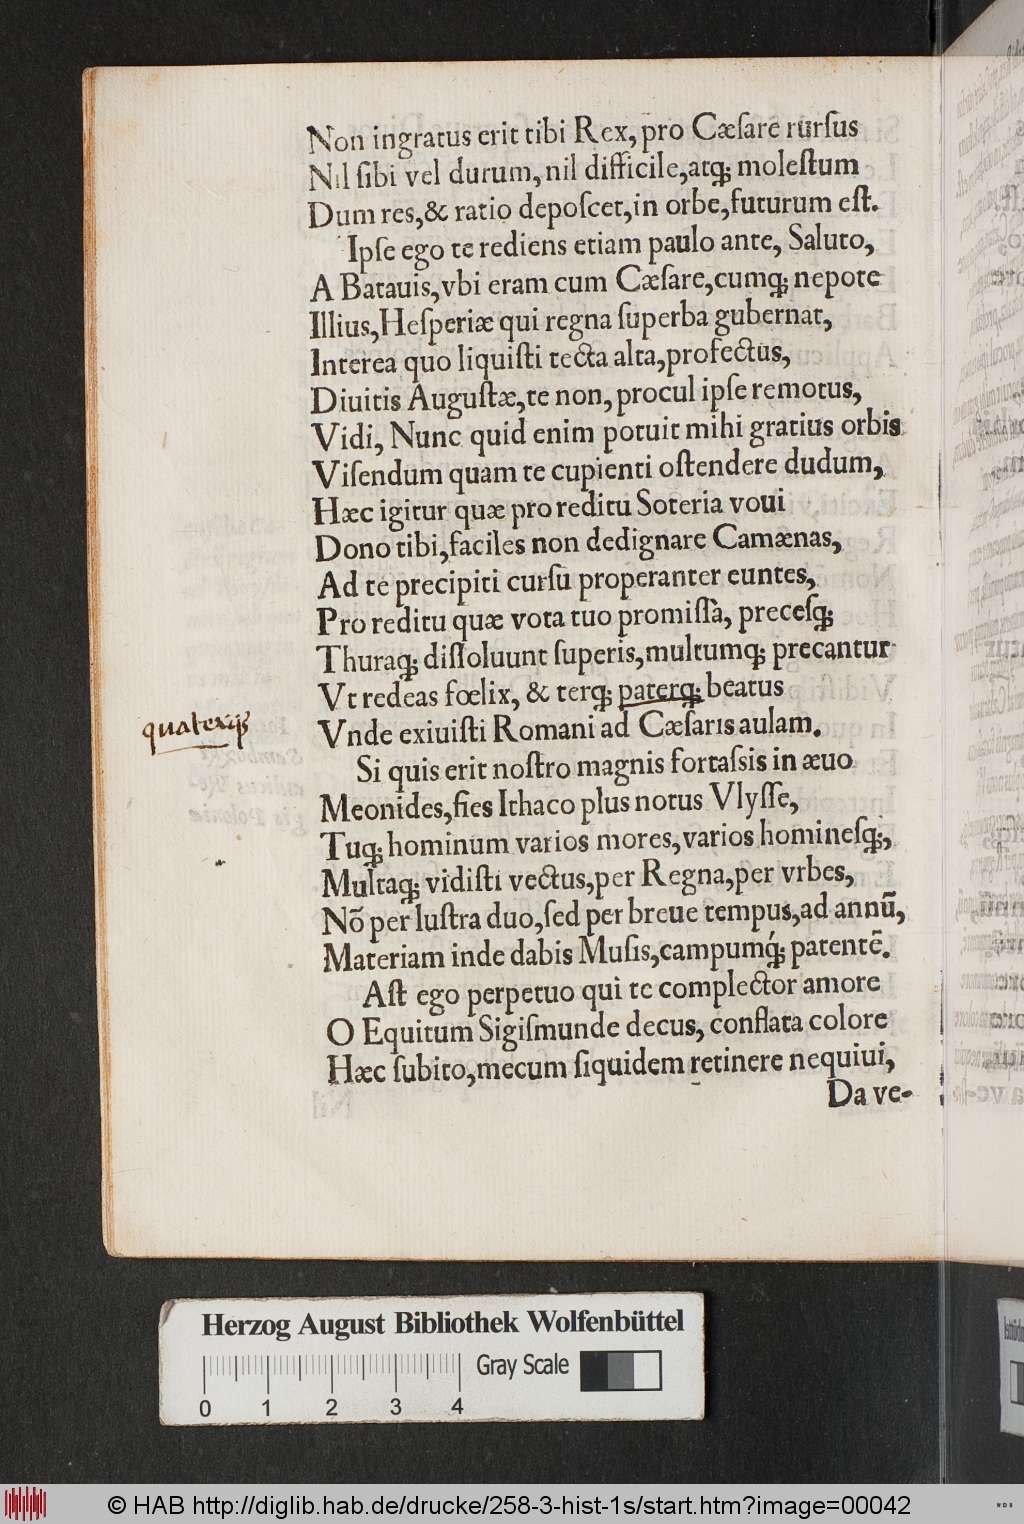 Non ingratus erit tibi Rex, pro Cæſare rurſus
Nil ſibi vel durum, nil difficile, atq; moleſtum
Dum res, & ratio depoſcet, in orbe, futurum eſt.
Ipſe ego te rediens etiam paulo ante, Saluto,
A Batauis, vbi eram cum Cæſare, cumq; nepote
Illius, Heſperiæ qui regna ſuperba gubernat,
Interea quo liquiſti tecta alta, profectus,
Diuitis Auguſtæ, te non, procul ipſe remotus,
Vidi, Nunc quid enim potuit mihi gratius orbis
Viſendum quam te cupienti oſtendere dudum,
Hæc igitur quæ pro reditu Soteria voui
Dono tibi, faciles non dedignare Camænas,
Ad te precipiti curſu properanter euntes,
Pro reditu quæ vota tuo promiſſa, preceſq;
Thuraq; diſſoluunt ſuperis, multumq; precantur
Vt redeas fœlix, & terq; paterq; beatus
quaterq;
Vnde exiuiſti Romani ad Cæſaris aulam.
Si quis erit noſtro magnis fortaſsis in æuo
Meonides, fies Ithaco plus notus Vlyſſe,
Tuq; hominum varios mores, varios homineſq;,
Multaq; vidiſti vectus, per Regna, per vrbes,
Nõ per luſtra duo, ſed per breue tempus, ad annũ,
Materiam inde dabis Muſis, campumq́; patentẽ.
Aſt ego perpetuo qui te complector amore
O Equitum Sigiſmunde decus, conflata colore
Hæc ſubito, mecum ſiquidem retinere nequiui,
Da ve-
Herzog August Bibliothek Wolfenbüttel
Gray Scale
0 1 2 3 4
© HAB http://diglib.hab.de/drucke/258-3-hist-1s/start.htm?image=00042